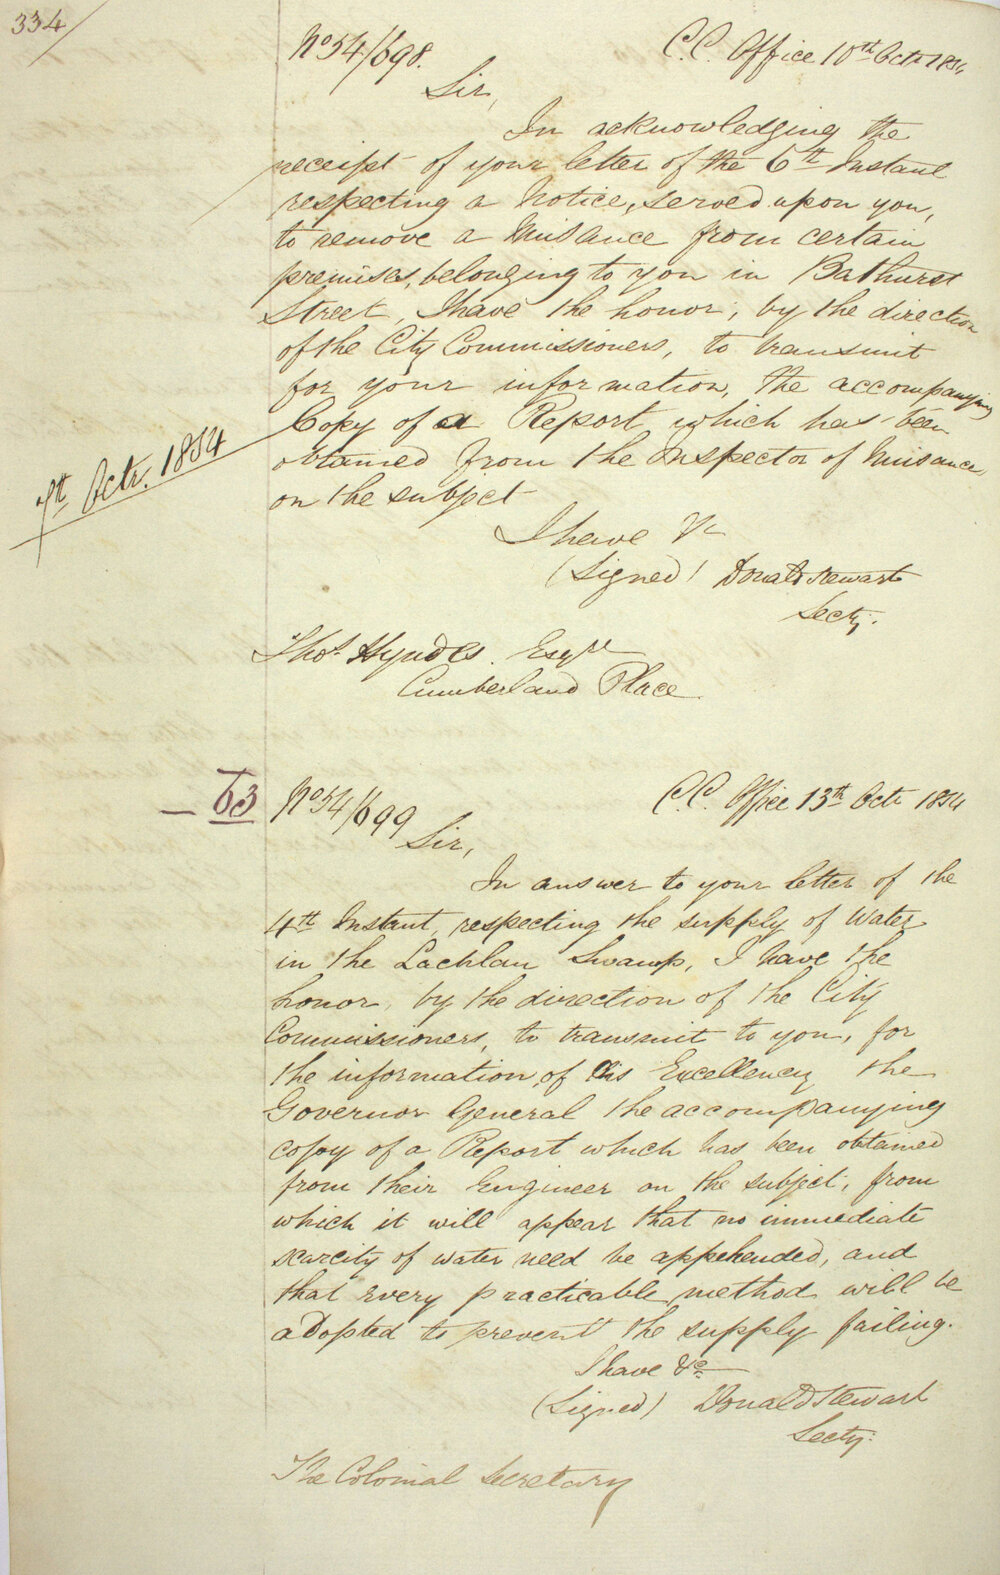 334
No 54/698. C.C. Office 10th Octr 1854
Sir,
In acknowledging the
receipt of your letter of the 6th Instant
respecting a Notice, served upon you,
to remove a Nuisance from certain
premises, belonging to you in Bathurst
Street, I have the honor, by the direction
of the City Commissioners, to transmit
for your information, the accompanying
Copy of a Report which has been
7th Octr. 1854
obtained from the Inspector of Nuisance
on the subject
I have &c
(Signed) Donald Stewart
Secty.
Thos. Hyndes Esqre
Cumberland Place
63
No 54/699 C.C. Office 13th Octr 1854
Sir,
In answer to your letter of the
4th Instant, respecting the supply of Water
in the Lachlan Swamp, I have the
honor, by the direction of the City
Commissioners, to transmit to you, for
the information, of His Excellency the
Governor General the accompanying
copy of a Report which has been obtained
from their Engineer on the subject, from
which it will appear that no immediate
scarcity of water need be appehended, and
that every practicable method will be
adopted to prevent the supply failing.
I have &c
(Signed) Donald Stewart
Secty.
The Colonial Secretary